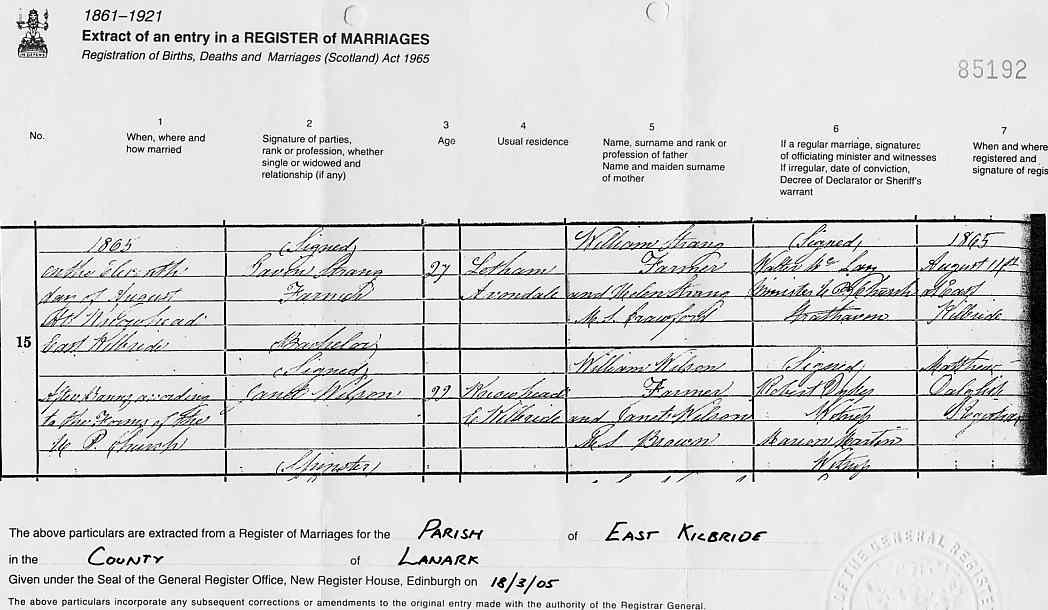 1861–1921
Extract of an entry in a REGISTER of MARRIAGES
Registration of Births, Deaths and Marriages (Scotland) Act 1965
85192
No.
1
When, where and
how married
2
Signature of parties,
rank or profession, whether
single or widowed and
relationship (if any)
3
Age
4
Usual residence
5
Name, surname and rank or
profession of father
Name and maiden surname
of mother
6
If a regular marriage, signatures
of officiating minister and witnesses
If irregular, date of conviction,
Decree of Declarator or Sheriff's
warrant
7
When and where
registered and
signature of regis
15
1865
on the Eleventh
day of August
At Knowehead
East Kilbride
After Banns according
to the Forms of the
U. P. Church
(Signed)
Gavin Strang
Farmer
(Bachelor)
(Signed)
Janet Wilson
(Spinster)
27
22
Letham
Avondale
Knowehead
E. Kilbride
William Strang
Farmer
and Helen Strang
M.S. Crawford
William Wilson
Farmer
and Janet Wilson
M.S. Brown
(Signed)
Walter Mc Lay
Minister U. P. Church
Strathaven
(Signed)
Robert
Witness
Marion Martin
Witness
1865
August 11th
at East
Kilbride
Matthew
Dalglish
Registrar
The above particulars are extracted from a Register of Marriages for the PARISH of EAST KILBRIDE
in the COUNTY of LANARK
Given under the Seal of the General Register Office, New Register House, Edinburgh on 18/3/05
The above particulars incorporate any subsequent corrections or amendments to the original entry made with the authority of the Registrar General.
OF THE GENERAL REGISTE